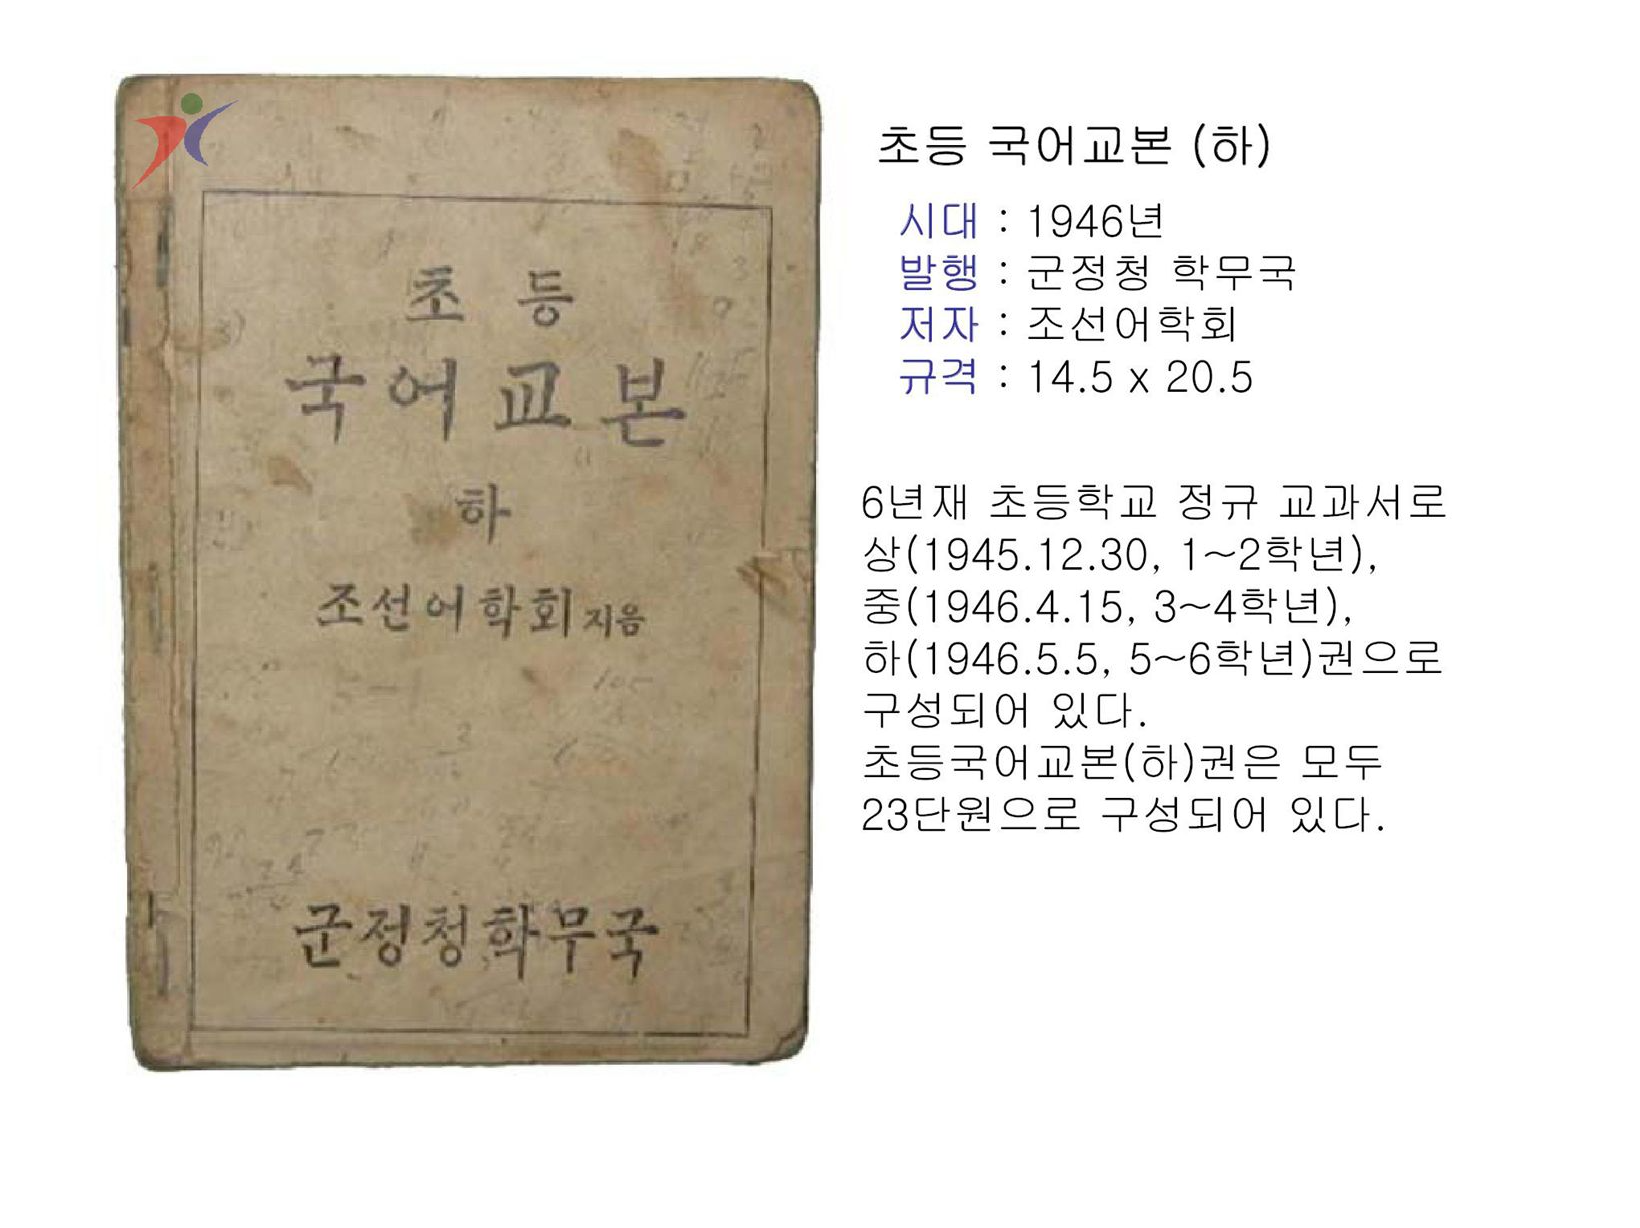 초등
국어교본
하
조선어학회 지음
군정청학무국
초등 국어교본 (하)
시대 : 1946년
발행 : 군정청 학무국
저자 : 조선어학회
규격 : 14.5 x 20.5
6년재 초등학교 정규 교과서로
상(1945.12.30, 1~2학년),
중(1946.4.15, 3~4학년),
하(1946.5.5, 5~6학년)권으로
구성되어 있다.
초등국어교본(하)권은 모두
23단원으로 구성되어 있다.